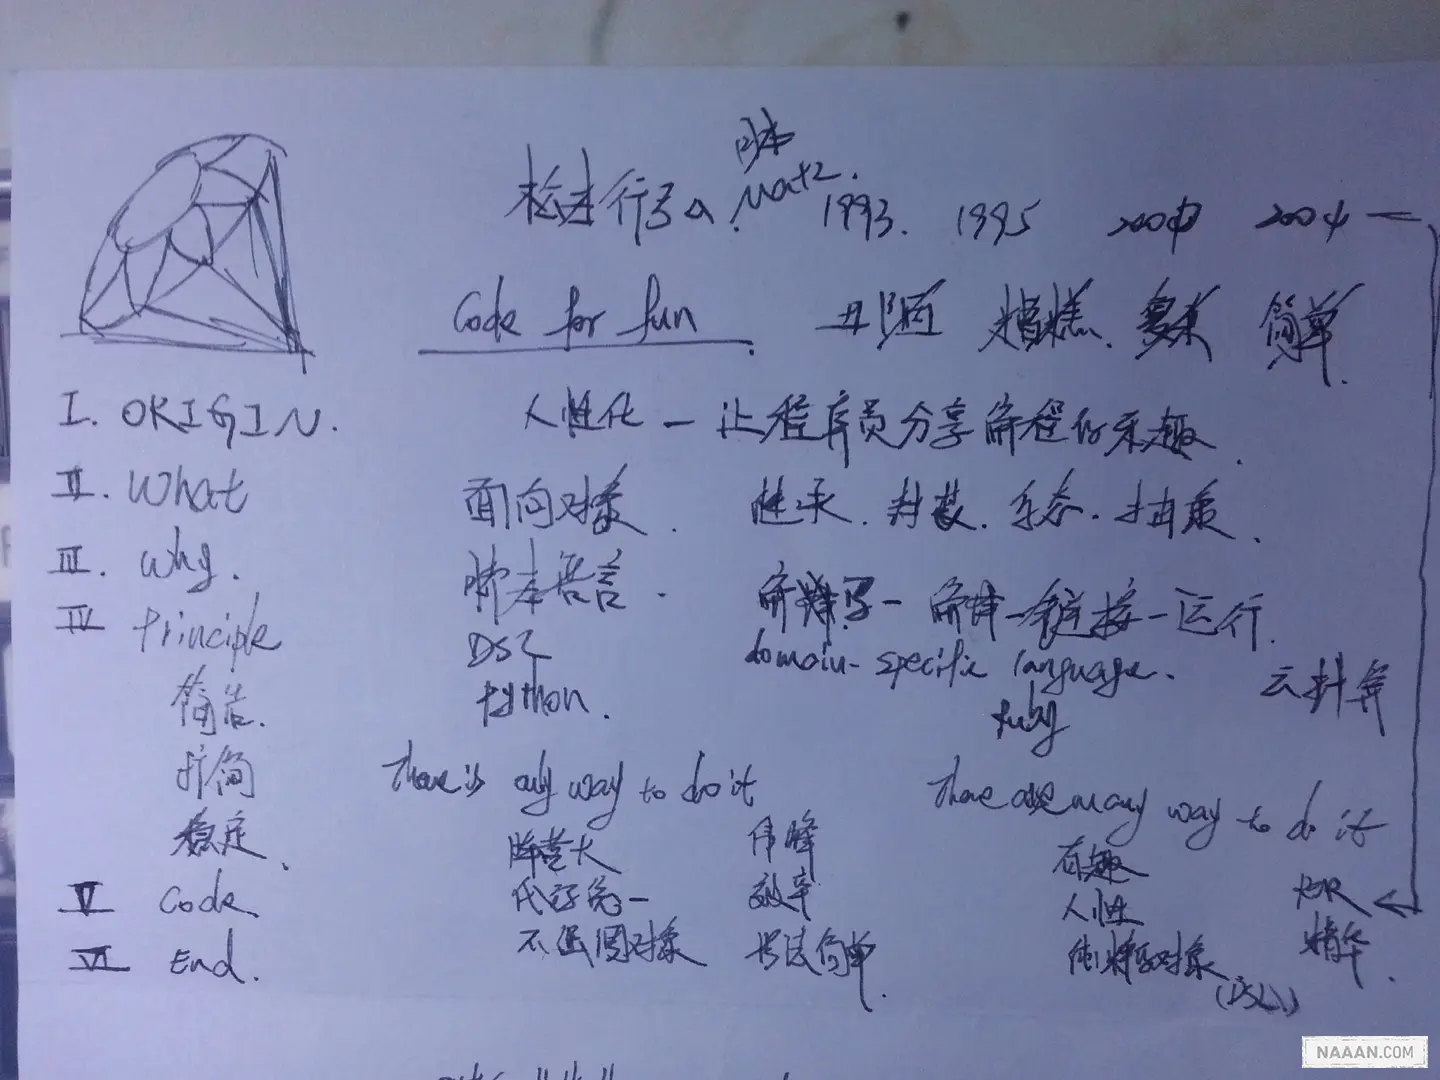 日本
松本行弘 Matz. 1993. 1995 2004
Code for fun 糟糕. 复杂 简单.
I. ORIGIN. 人性化 — 让程序员分享编程的乐趣.
II. What 面向对象. 继承. 封装. 多态. 抽象.
III. Why. 脚本语言. 编写 — 编译 — 链接 — 运行.
IV Principle DSL domain-specific language. 云计算
简洁. Python. Ruby
扩简 There is only way to do it There are many way to do it
稳定. 阵营大 有趣
代码统一 效率 人性 ROR
V Code 不强调对象 语法简单. 对象 精华.
VI End. (DSL)
NAAAN.COM